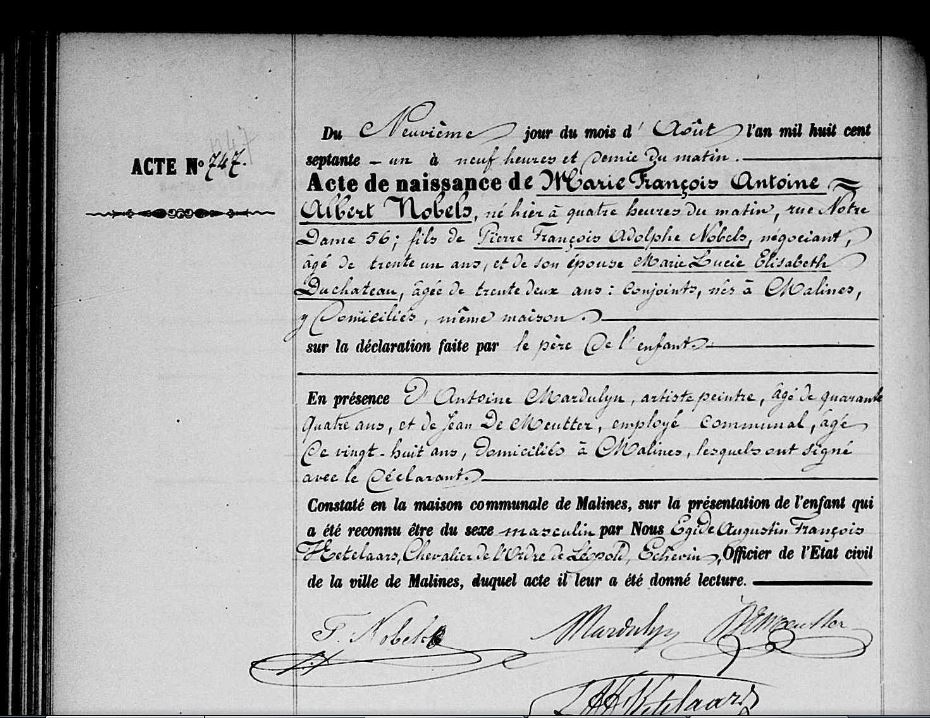 ACTE N° 747.
Du Neuvième jour du mois d'Août l'an mil huit cent
septante - un à neuf heures et demie du matin.
Acte de naissance de Marie François Antoine
Albert Nobels, né hier à quatre heures du matin, rue Notre
Dame 56; fils de Pierre François Adolphe Nobels, négociant,
âgé de trente un ans, et de son épouse Marie Lucie Elisabeth
Duchateau, âgée de trente deux ans: conjoints, nés à Malines,
y domiciliés, même maison.
sur la déclaration faite par le père de l'enfant.
En présence d'Antoine Mardulyn, artiste peintre, âgé de quarante
quatre ans, et de Jean De Meutter, employé communal, âgé
de vingt-huit ans, domiciliés à Malines, lesquels ont signé
avec le déclarant.
Constaté en la maison communale de Malines, sur la présentation de l'enfant qui
a été reconnu être du sexe masculin par Nous Egide Augustin François
Ketelaars, Chevalier de l'Ordre de Léopold, Echevin, Officier de l'Etat civil
de la ville de Malines, duquel acte il leur a été donné lecture.
F. Nobels Mardulyn J DeMeutter
Ketelaars